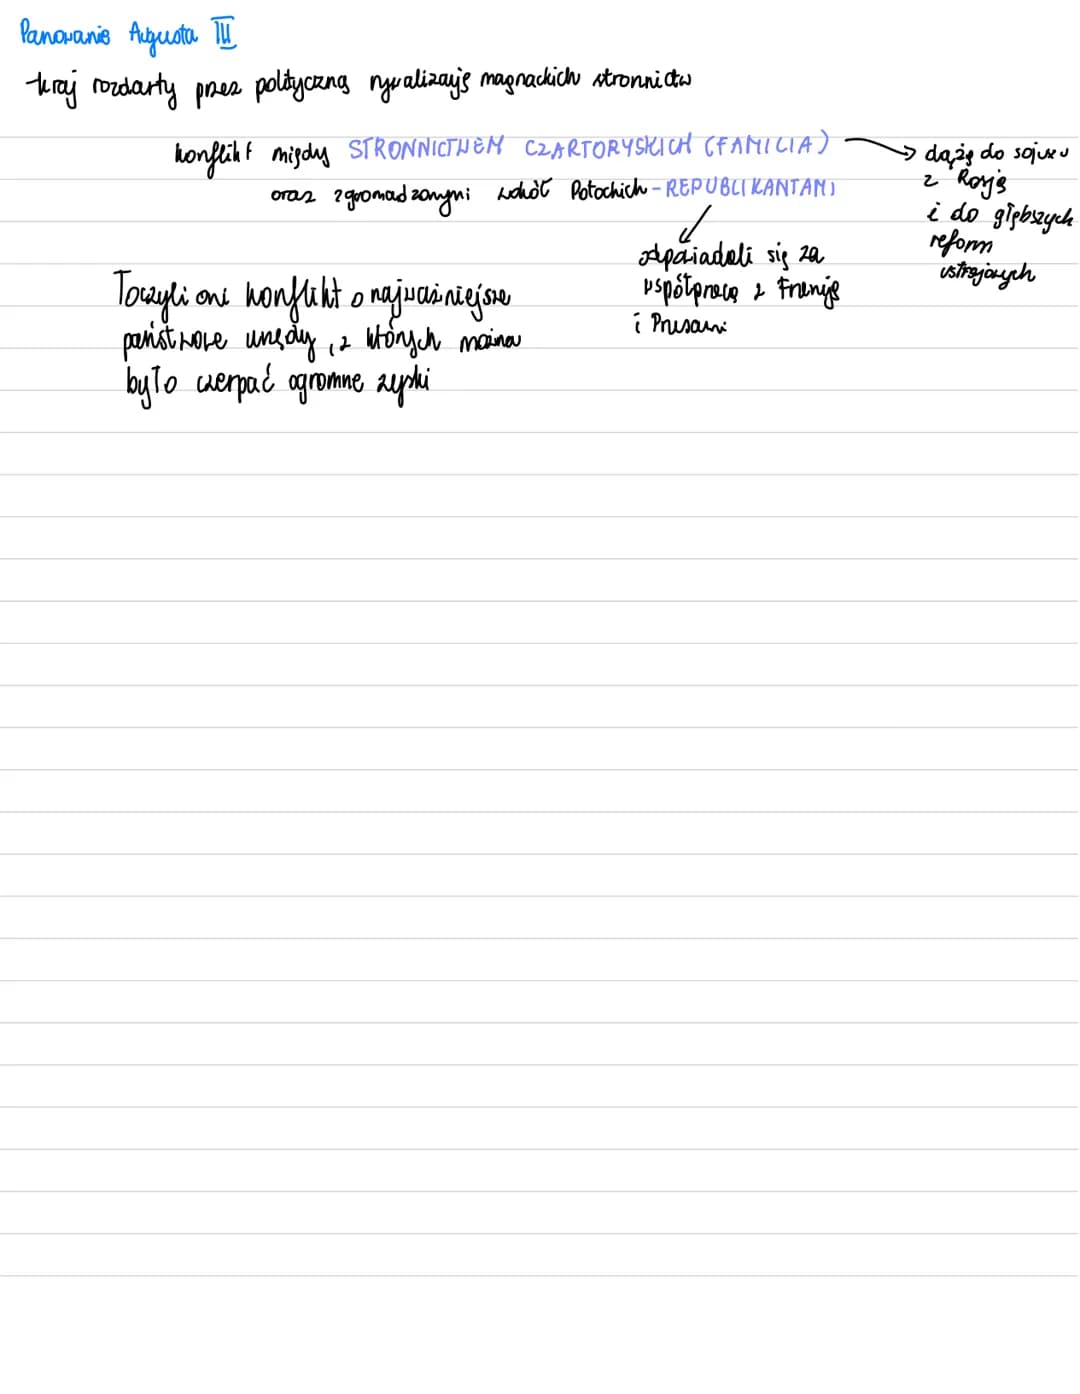 Panowanie Augusta III
kraj rozdarty przez polityczną rywalizację magnackich stronnictw
konflikt między STRONNICTWEM CZARTORYSKICH (FAMILIA)
oraz zgromadzonymi wokół Potockich - REPUBLIKANTAMI
dążą do sojuszu
z Rosją
i do głębszych
reform
ustrojowych
odpowiadali się za
współpracą z Francją
i Prusami
Toczyli oni konflikt o najważniejsze
państwowe urzędy, z których można
było czerpać ogromne zyski